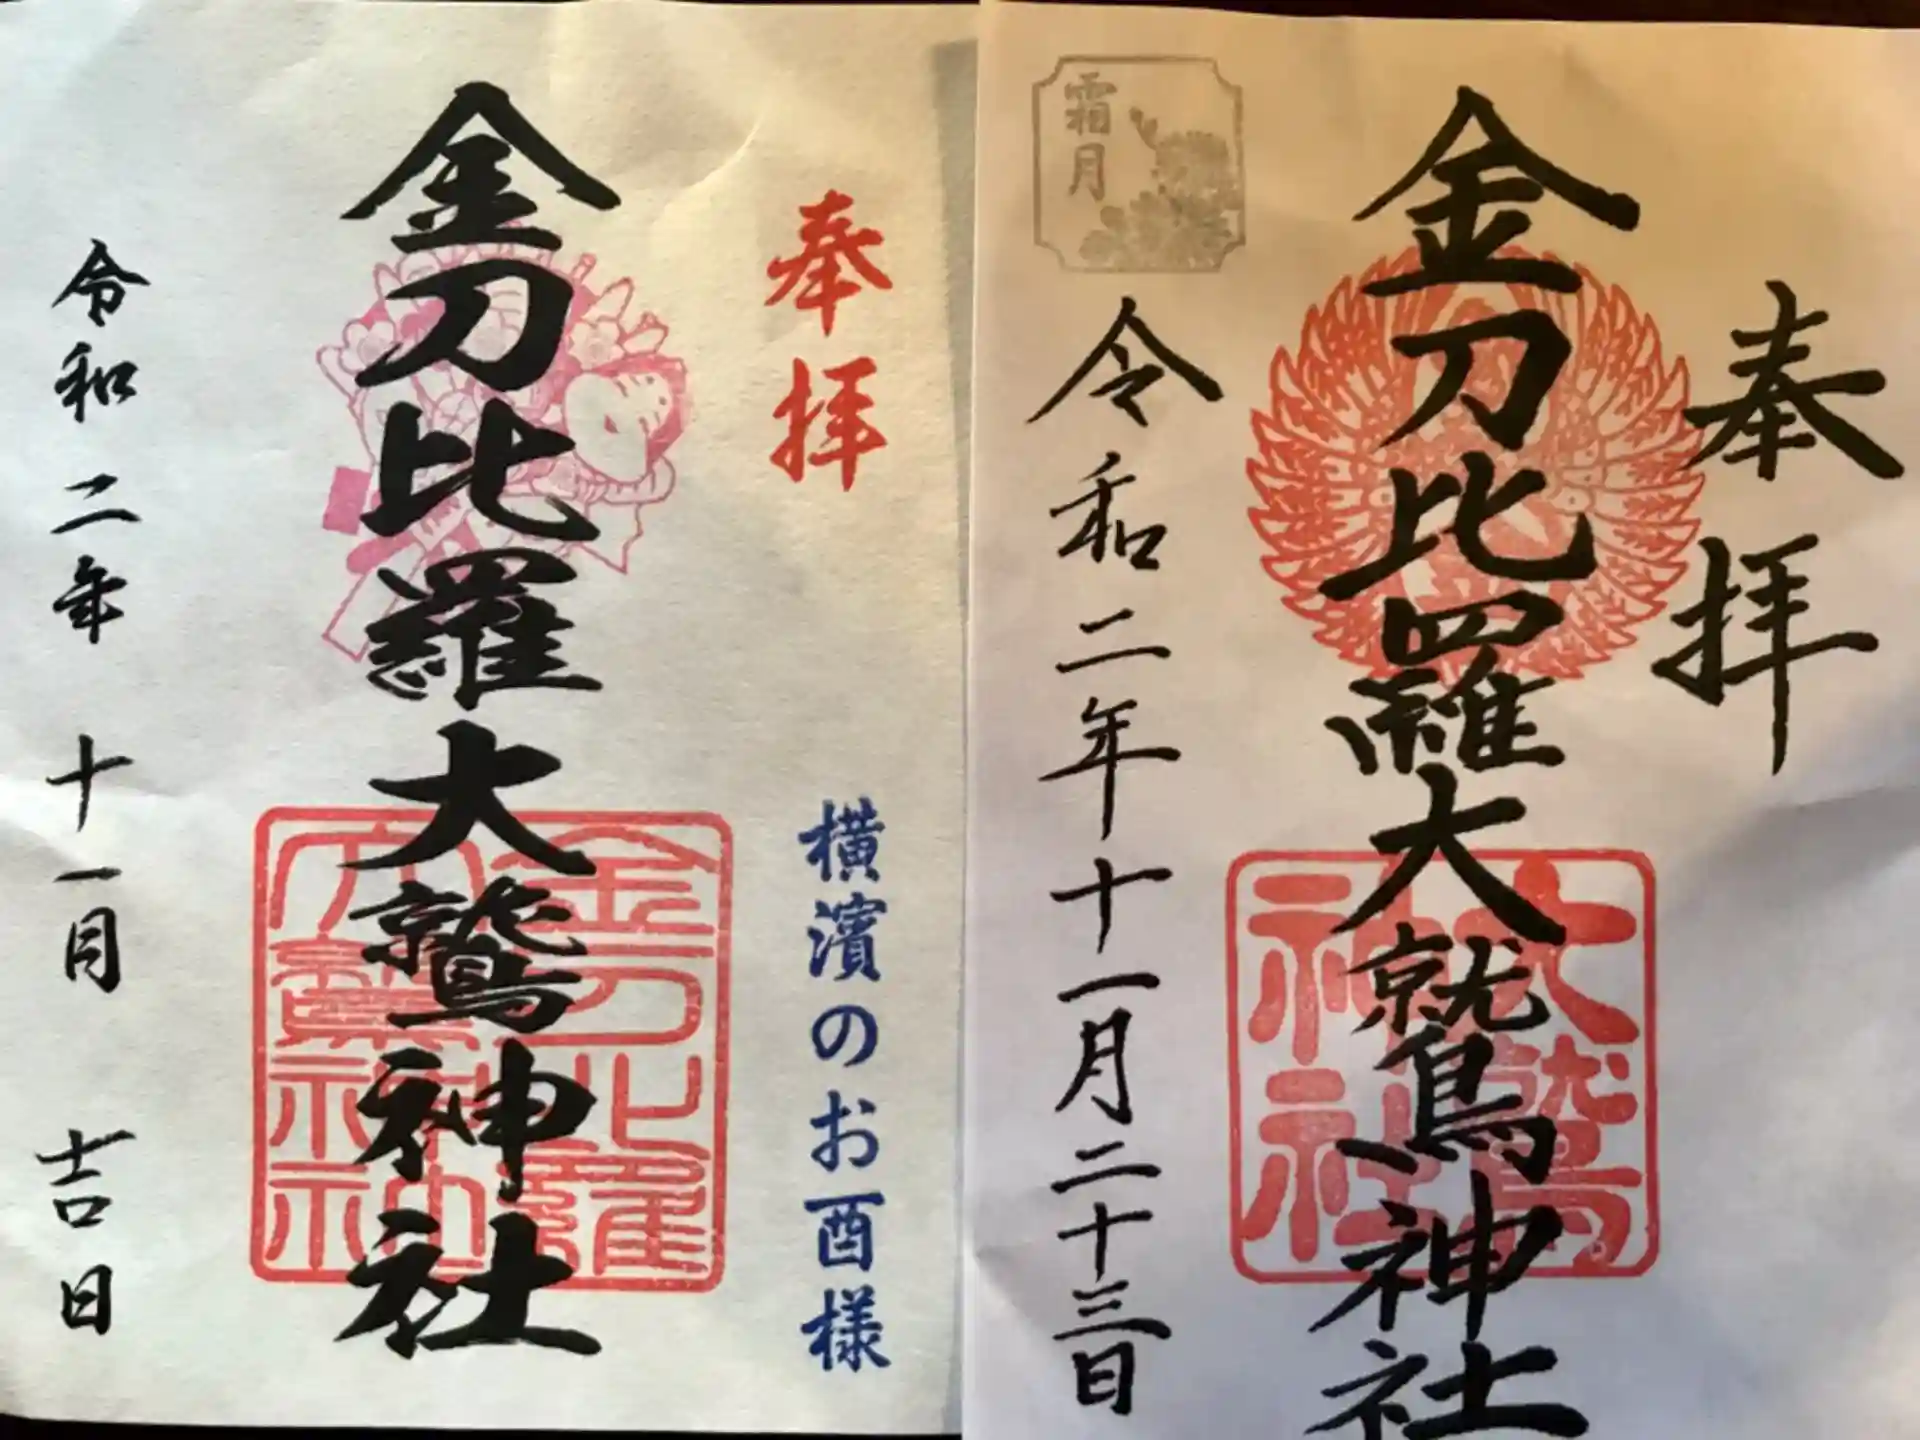 奉拝
横濱のお酉様
金刀比羅大鷲神社
令和二年 十一月 吉日
金刀比羅大鷲神社
奉拝
金刀比羅大鷲神社
大鷲神社
霜月
令和二年十一月二十三日